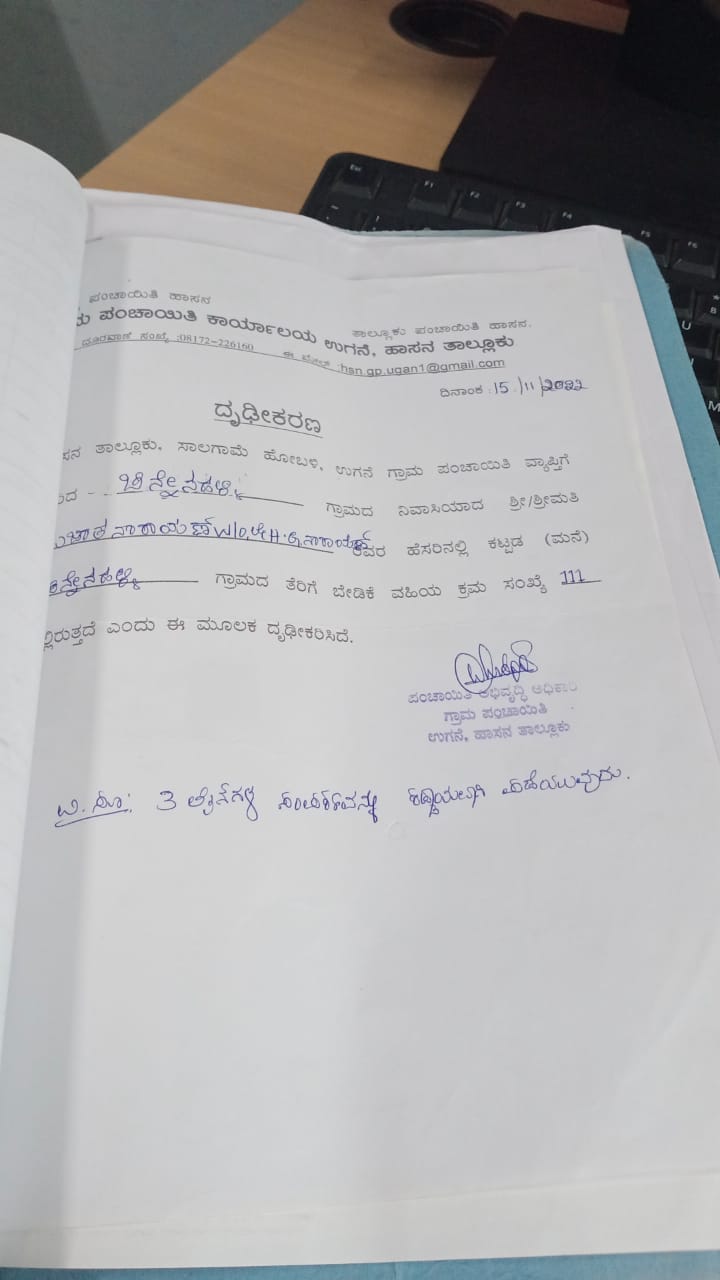 ಪಂಚಾಯಿತಿ ಹಾಸನ
ತಾಲ್ಲೂಕು ಪಂಚಾಯಿತಿ ಹಾಸನ.
ಪಂಚಾಯಿತಿ ಕಾರ್ಯಾಲಯ ಉಗನೆ, ಹಾಸನ ತಾಲ್ಲೂಕು
ದೂರವಾಣಿ ಸಂಖ್ಯೆ :08172-226160 ಈ ಮೇಲ್ :hsn.gp.ugan1@gmail.com
ದಿನಾಂಕ :15/11/2022
ದೃಢೀಕರಣ
ತಾಲ್ಲೂಕು, ಸಾಲಗಾಮೆ ಹೋಬಳಿ, ಉಗನೆ ಗ್ರಾಮ ಪಂಚಾಯಿತಿ ವ್ಯಾಪ್ತಿಗೆ
ಗ್ರಾಮದ ನಿವಾಸಿಯಾದ ಶ್ರೀ/ಶ್ರೀಮತಿ
W/o ಲೇ H.G. ನಾರಾಯಣ್ ರವರ ಹೆಸರಿನಲ್ಲಿ ಕಟ್ಟಡ (ಮನೆ)
ಗ್ರಾಮದ ತೆರಿಗೆ ಬೇಡಿಕೆ ವಹಿಯ ಕ್ರಮ ಸಂಖ್ಯೆ 111
ಎಂದು ಈ ಮೂಲಕ ದೃಢೀಕರಿಸಿದೆ.
ಪಂಚಾಯಿತಿ ಅಭಿವೃದ್ಧಿ ಅಧಿಕಾರಿ
ಗ್ರಾಮ ಪಂಚಾಯಿತಿ
ಉಗನೆ, ಹಾಸನ ತಾಲ್ಲೂಕು
ವಿ.ಸೂ: 3 ಲೈನ್‌ಗಳ ಸಂಪರ್ಕವನ್ನು ಕಡ್ಡಾಯವಾಗಿ ಪಡೆಯುವುದು.